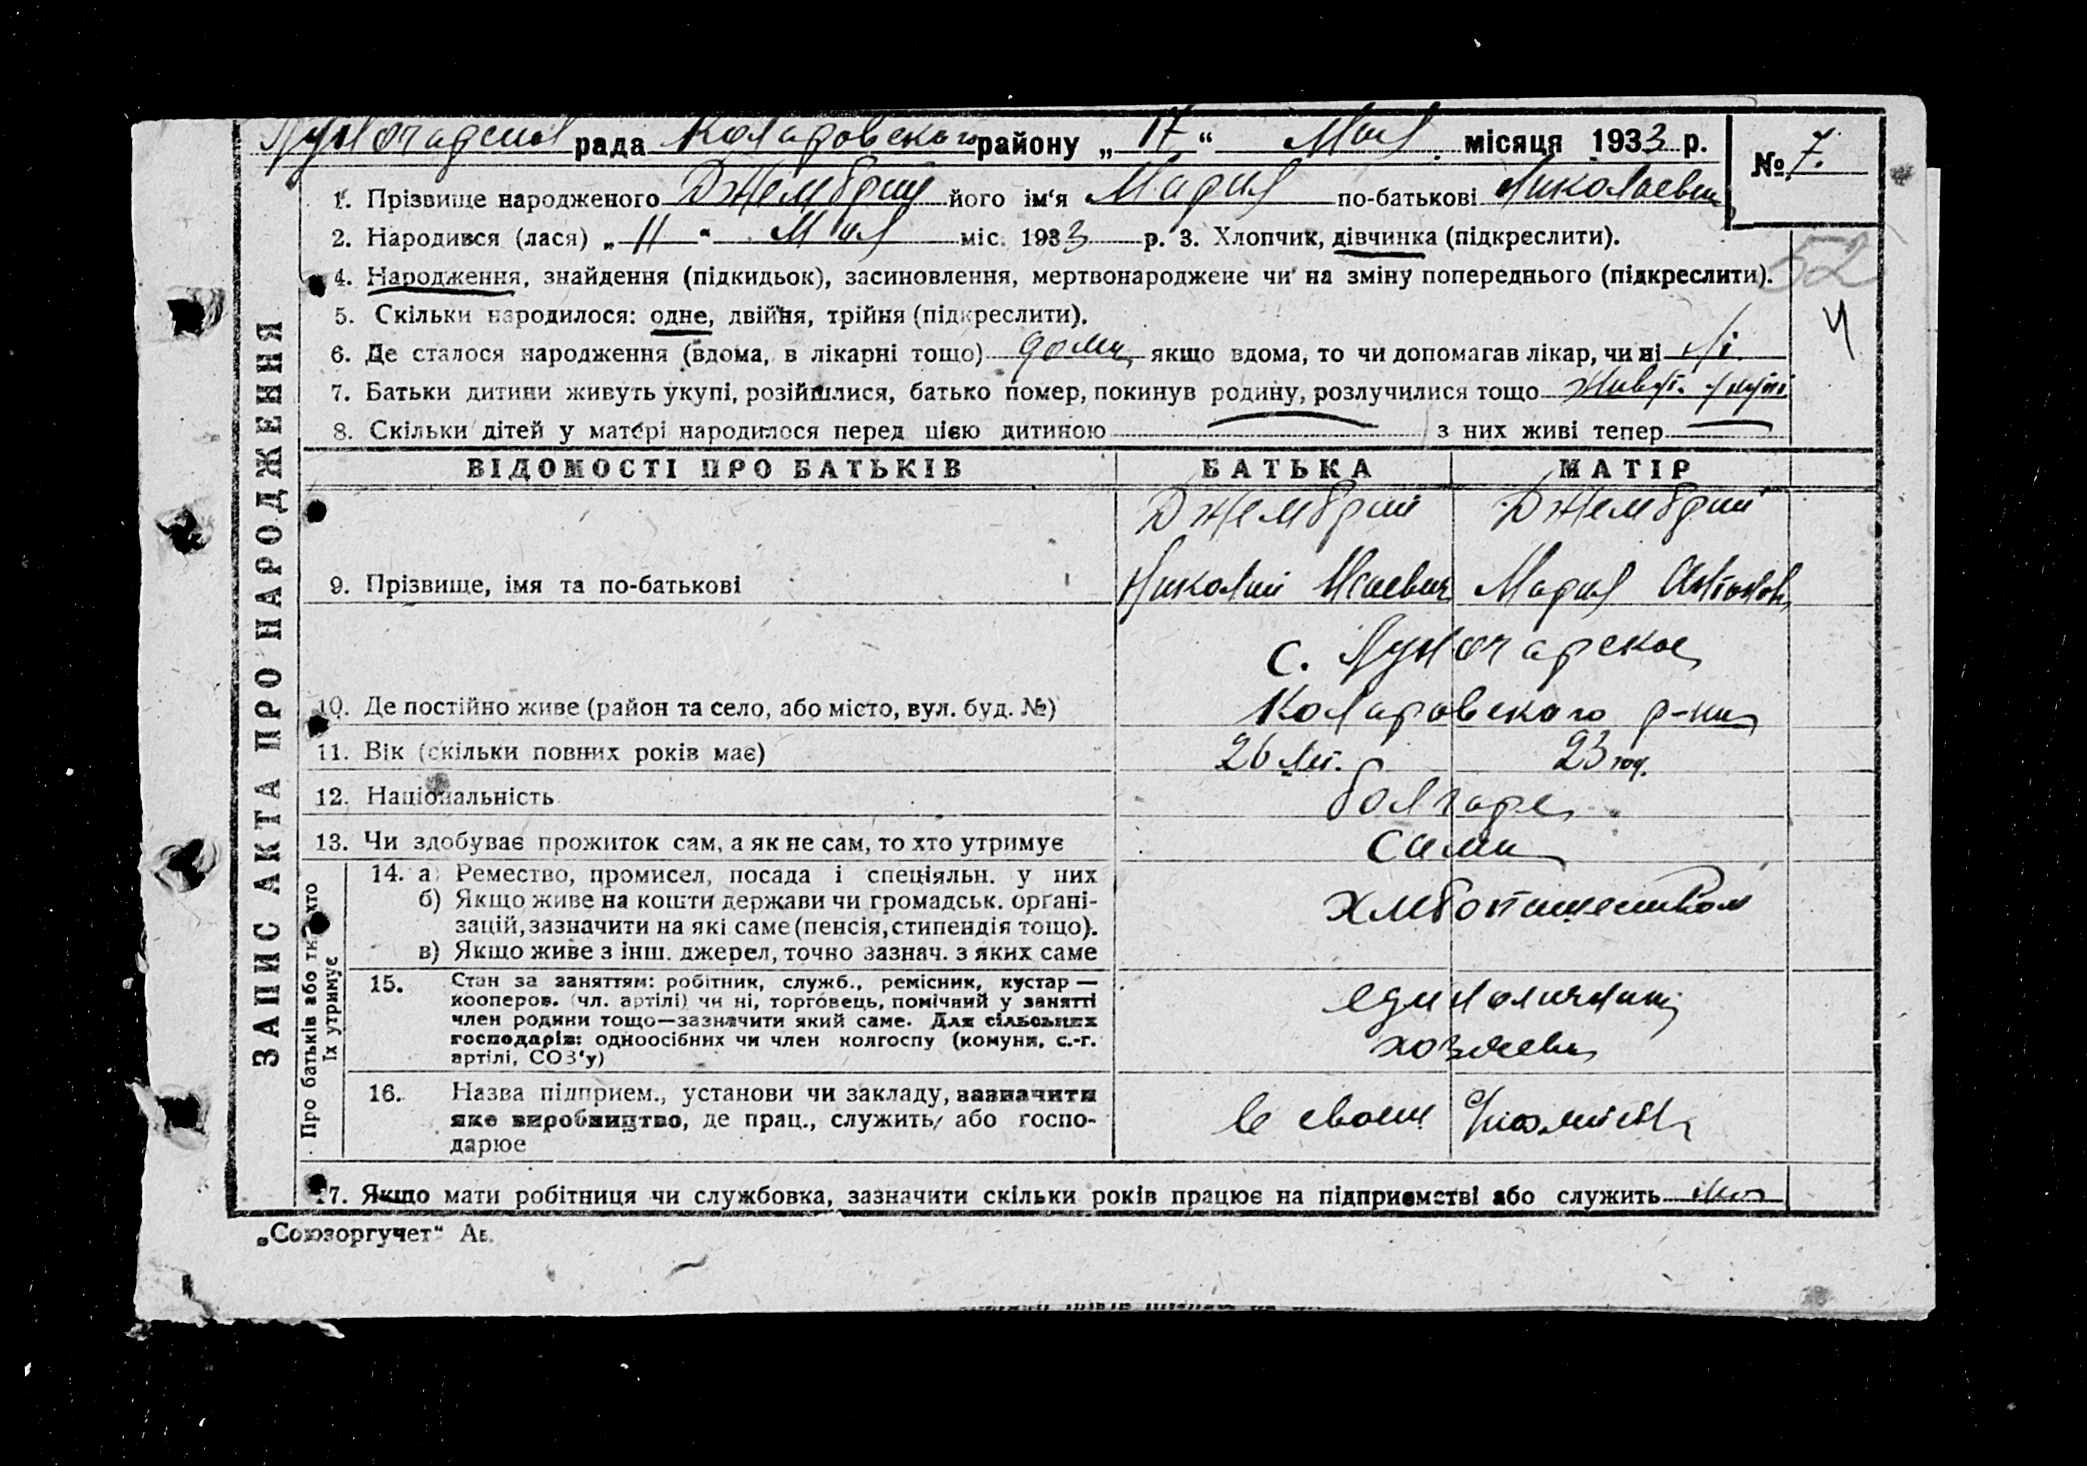 Луночарская рада Коларовского району „17“ Мая місяця 1933 р.
№ 7.
1. Прізвище народженого Джембрий його ім‘я Мария по-батькові Николаевна
2. Народився (лася) „11“ Мая міс. 1933 р. 3. Хлопчик, дівчинка (підкреслити).
52
4. Народження, знайдення (підкидьок), засиновлення, мертвонароджене чи на зміну попереднього (підкреслити).
5. Скільки народилося: одне, двійня, трійня (підкреслити).
6. Де сталося народження (вдома, в лікарні тощо) дома якщо вдома, то чи допомагав лікар, чи ні Ні.
7. Батьки дитини живуть укупі, розійшлися, батько помер, покинув родину, розлучилися тощо живут укупі
8. Скільки дітей у матері народилося перед цією дитиною — з них живі тепер —
ЗАПИС АКТА ПРО НАРОДЖЕННЯ
ВІДОМОСТІ ПРО БАТЬКІВ БАТЬКА МАТІР
Джембрий Джембрий
9. Прізвище, імя та по-батькові Николай Исаевич Мария Антонов
с. Луночарское
10. Де постійно живе (район та село, або місто, вул. буд. №) Коларовского р-на
11. Вік (скільки повних років має) 26 лет. 23 год.
12. Національність болгаре
13. Чи здобуває прожиток сам, а як не сам, то хто утримує сами
Про батьків або тих хто
їх утримує
14. а) Ремество, промисел, посада і спеціяльн. у них
б) Якщо живе на кошти держави чи громадськ. органі-
зацій, зазначити на які саме (пенсія, стипендія тощо).
в) Якщо живе з інш. джерел, точно зазнач. з яких саме
хлебопашеством
15. Стан за заняттям: робітник, служб., ремісник, кустар —
кооперов. (чл. артілі) чи ні, торговець, помічний у занятті
член родини тощо—зазначити який саме. Для сільських
господарів: одноосібних чи член колгоспу (комуни, с.-г.
артілі, СОЗ‘у)
единоличники
хозяева
16. Назва підприєм., установи чи закладу, зазначити
яке виробництво, де прац., служить, або госпо-
дарюе
в своем
17. Якщо мати робітниця чи службовка, зазначити скільки років працює на підприємстві або служить
„Союзоргучет“